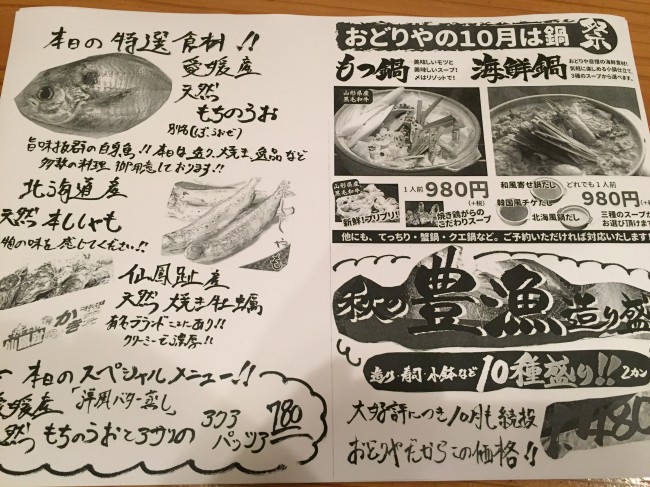 本日の特選食材!!
愛媛産
天然
もちのうお
別名(ぼうぜ)
旨味抜群の白身魚!!本日は造り、焼き、逸品など
多数の料理御用意しております!!
北海道産
天然 本ししゃも
物の味を感じてください!!
仙鳳趾産
天然 焼き牡蠣
有名ブランドここにあり!!
クリーミーで濃厚!!
かき
本日のスペシャルメニュー!!
愛媛産「洋風バター蒸し」
天然 もちのうおとアサリの
アクア
パッツァ
780
おどりやの10月は鍋祭
もつ鍋
美味しいモツと
美味しいスープ!
〆はリゾットで!
海鮮鍋
おどりや自慢の海鮮食材!
気軽に楽しめる小鍋仕立て。
3種のスープから選べます。
山形県産
黒毛和牛
1人前 980円
(+税)
山形県産
黒毛和牛
新鮮!プリプリ!
焼き鶏がらの
こだわりスープ
和風寄せ鍋だし
韓国風チゲだし
北海風鍋だし
どれでも1人前
980円
(+税)
三種のスープから
お選び頂けます
他にも、てっちり・蟹鍋・クエ鍋など。ご予約いただければ対応いたします!
秋の豊漁造り盛
造り・寿司・小鉢など10種盛り!!2カン
大好評につき10月も続投
おどりやだからこの価格!!
1480